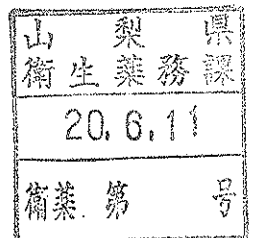 山梨県
衛生薬務課
20.6.11
衛薬.第 号